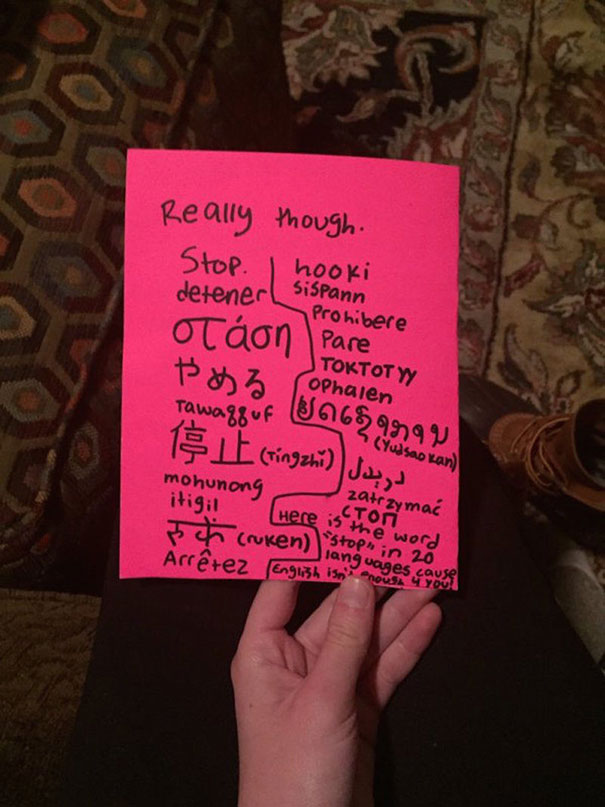 Really though.
Stop.
detener
στάση
やめる
Tawaqquf
停止 (Tingzhi)
mohunong
itigil
रुकें (ruken)
Arrêtez
hooki
sispann
Prohibere
Pare
TOKTOTYY
ophalen
(Yudsaokan)
zatrzymać
СТОП
Here is the word
"stop" in 20
languages cause
English isn't enough 4 you!